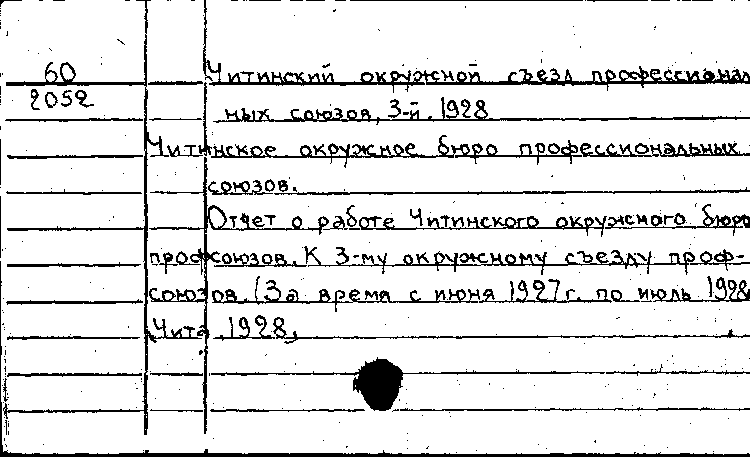 60
2052
Читинский окружной съезд профессионал
ных союзов, 3-й. 1928
Читинское окружное бюро профессиональных
союзов.
Отчет о работе Читинского окружного бюро
профсоюзов. К 3-му окружному съезду проф-
союзов. (За время с июня 1927 г. по июль 1928
Чита, 1928,